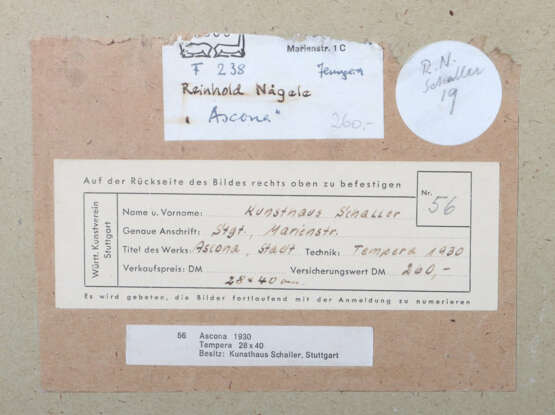 Marienstr. 1 C
F 238 Tempera
Reinhold Nägele
"Ascona"
260,-
R. N.
Schaller
19
Auf der Rückseite des Bildes rechts oben zu befestigen
Württ. Kunstverein
Stuttgart
Nr.
56
Name u. Vorname: Kunsthaus Schaller
Genaue Anschrift: Stgt., Marienstr.
Titel des Werks: Ascona, Stadt Technik: Tempera 1930
Verkaufspreis: DM Versicherungswert DM 260,-
28 x 40 cm
Es wird gebeten, die Bilder fortlaufend mit der Anmeldung zu numerieren
56 Ascona 1930
Tempera 28 x 40
Besitz: Kunsthaus Schaller, Stuttgart